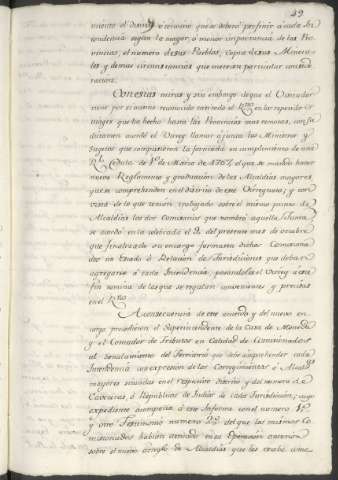 49
miento el distrito ó termino que se deberá prefinir á cada In-
tendencia segun la mayor, ó menor importancia de las Pro-
vincias, el numero de sus Pueblos, copia de sus Minera-
les y demas circunstancias que merezcan particular conside-
racion.
Con estas miras y sin embargo de que el Visitador
tiene por si mismo reconocido casi todo el Rno en las repetidas
que ha hecho hasta las Provincias mas remotas, con su
dictamen acordó el Virrey llamar á junta los Ministros y
Sugetos que compusieron la formada en cumplimiento de una
Rl Cedula de de Marzo de en que se mandó hacer
nuevo Reglamento y graduacion de las Alcaldias mayores,
que se comprehenden en el distrito de este Virreynato; y con
vista de lo que tenian trabajado sobre el mismo punto de
Alcaldias los dos Comisarios que nombró aquella Junta,
se acordó en la celebrada el de del presente mes de octubre
que finalizado su encargo formasen dichos Comisiona-
dos un Estado ó Relacion de las Jurisdicciones que deban
agregarse á cada Intendencia, pasandoles el Virrey á este
fin nomina de las que se regulan convenientes y precisas
en el Rno
A consecuencia de este acuerdo y del nuevo en-
cargo procedieron el Superintendente de la Casa de Moneda
y el Contador de Tributos en Calidad de Comisionados
al señalamiento del Territorio que debe comprehender cada
Intendencia con expresion de los Corregimientos ó Alcaldias
mayores situadas en el respectivo distrito y del numero de
Cabeceras, ó Republicas de Indios de cada Jurisdiccion; cuyo
expediente acompaña á este Informe en el numero 1º
y otro Testimonio numero 2º del que los mismos Co-
misionados habian actuado en su Operacion anterior
sobre el nuevo Arreglo de Alcaldias que les estaba come-